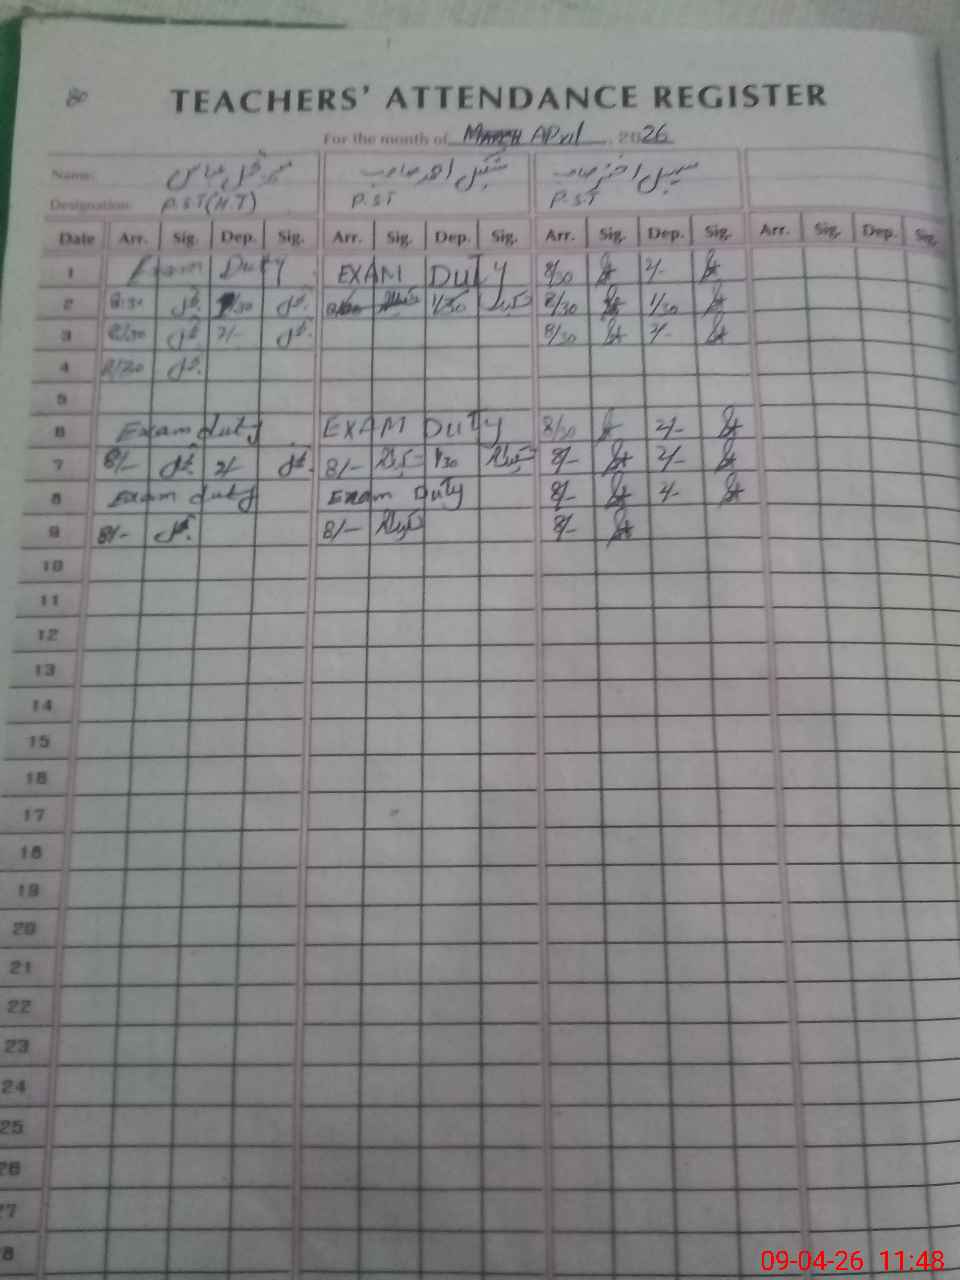 80
TEACHERS' ATTENDANCE REGISTER
For the month of April, 2026
Name: شکیل احمد صاحب سہیل اختر صاحب
Designation: P.S.T (H.T) P.S.T P.S.T
Date Arr. Sig. Dep. Sig. Arr. Sig. Dep. Sig. Arr. Sig. Dep. Sig. Arr. Sig. Dep. Sig.
1 Exam Duty EXAM Duty 8/30 2/-
2 8:30 /30 1/30 8/30 1/30
3 8/30 2/- 8/30 2/-
4 8/30
5
6 Exam duty EXAM Duty 8/30 2/-
7 8/- 2/- 8/- 1/30 8/- 2/-
8 Exam duty Exam Duty 8/- 2/-
9 8/- 8/- 8/-
10
11
12
13
14
15
16
17
18
19
20
21
22
23
24
25
26
27
28
09-04-26 11:48